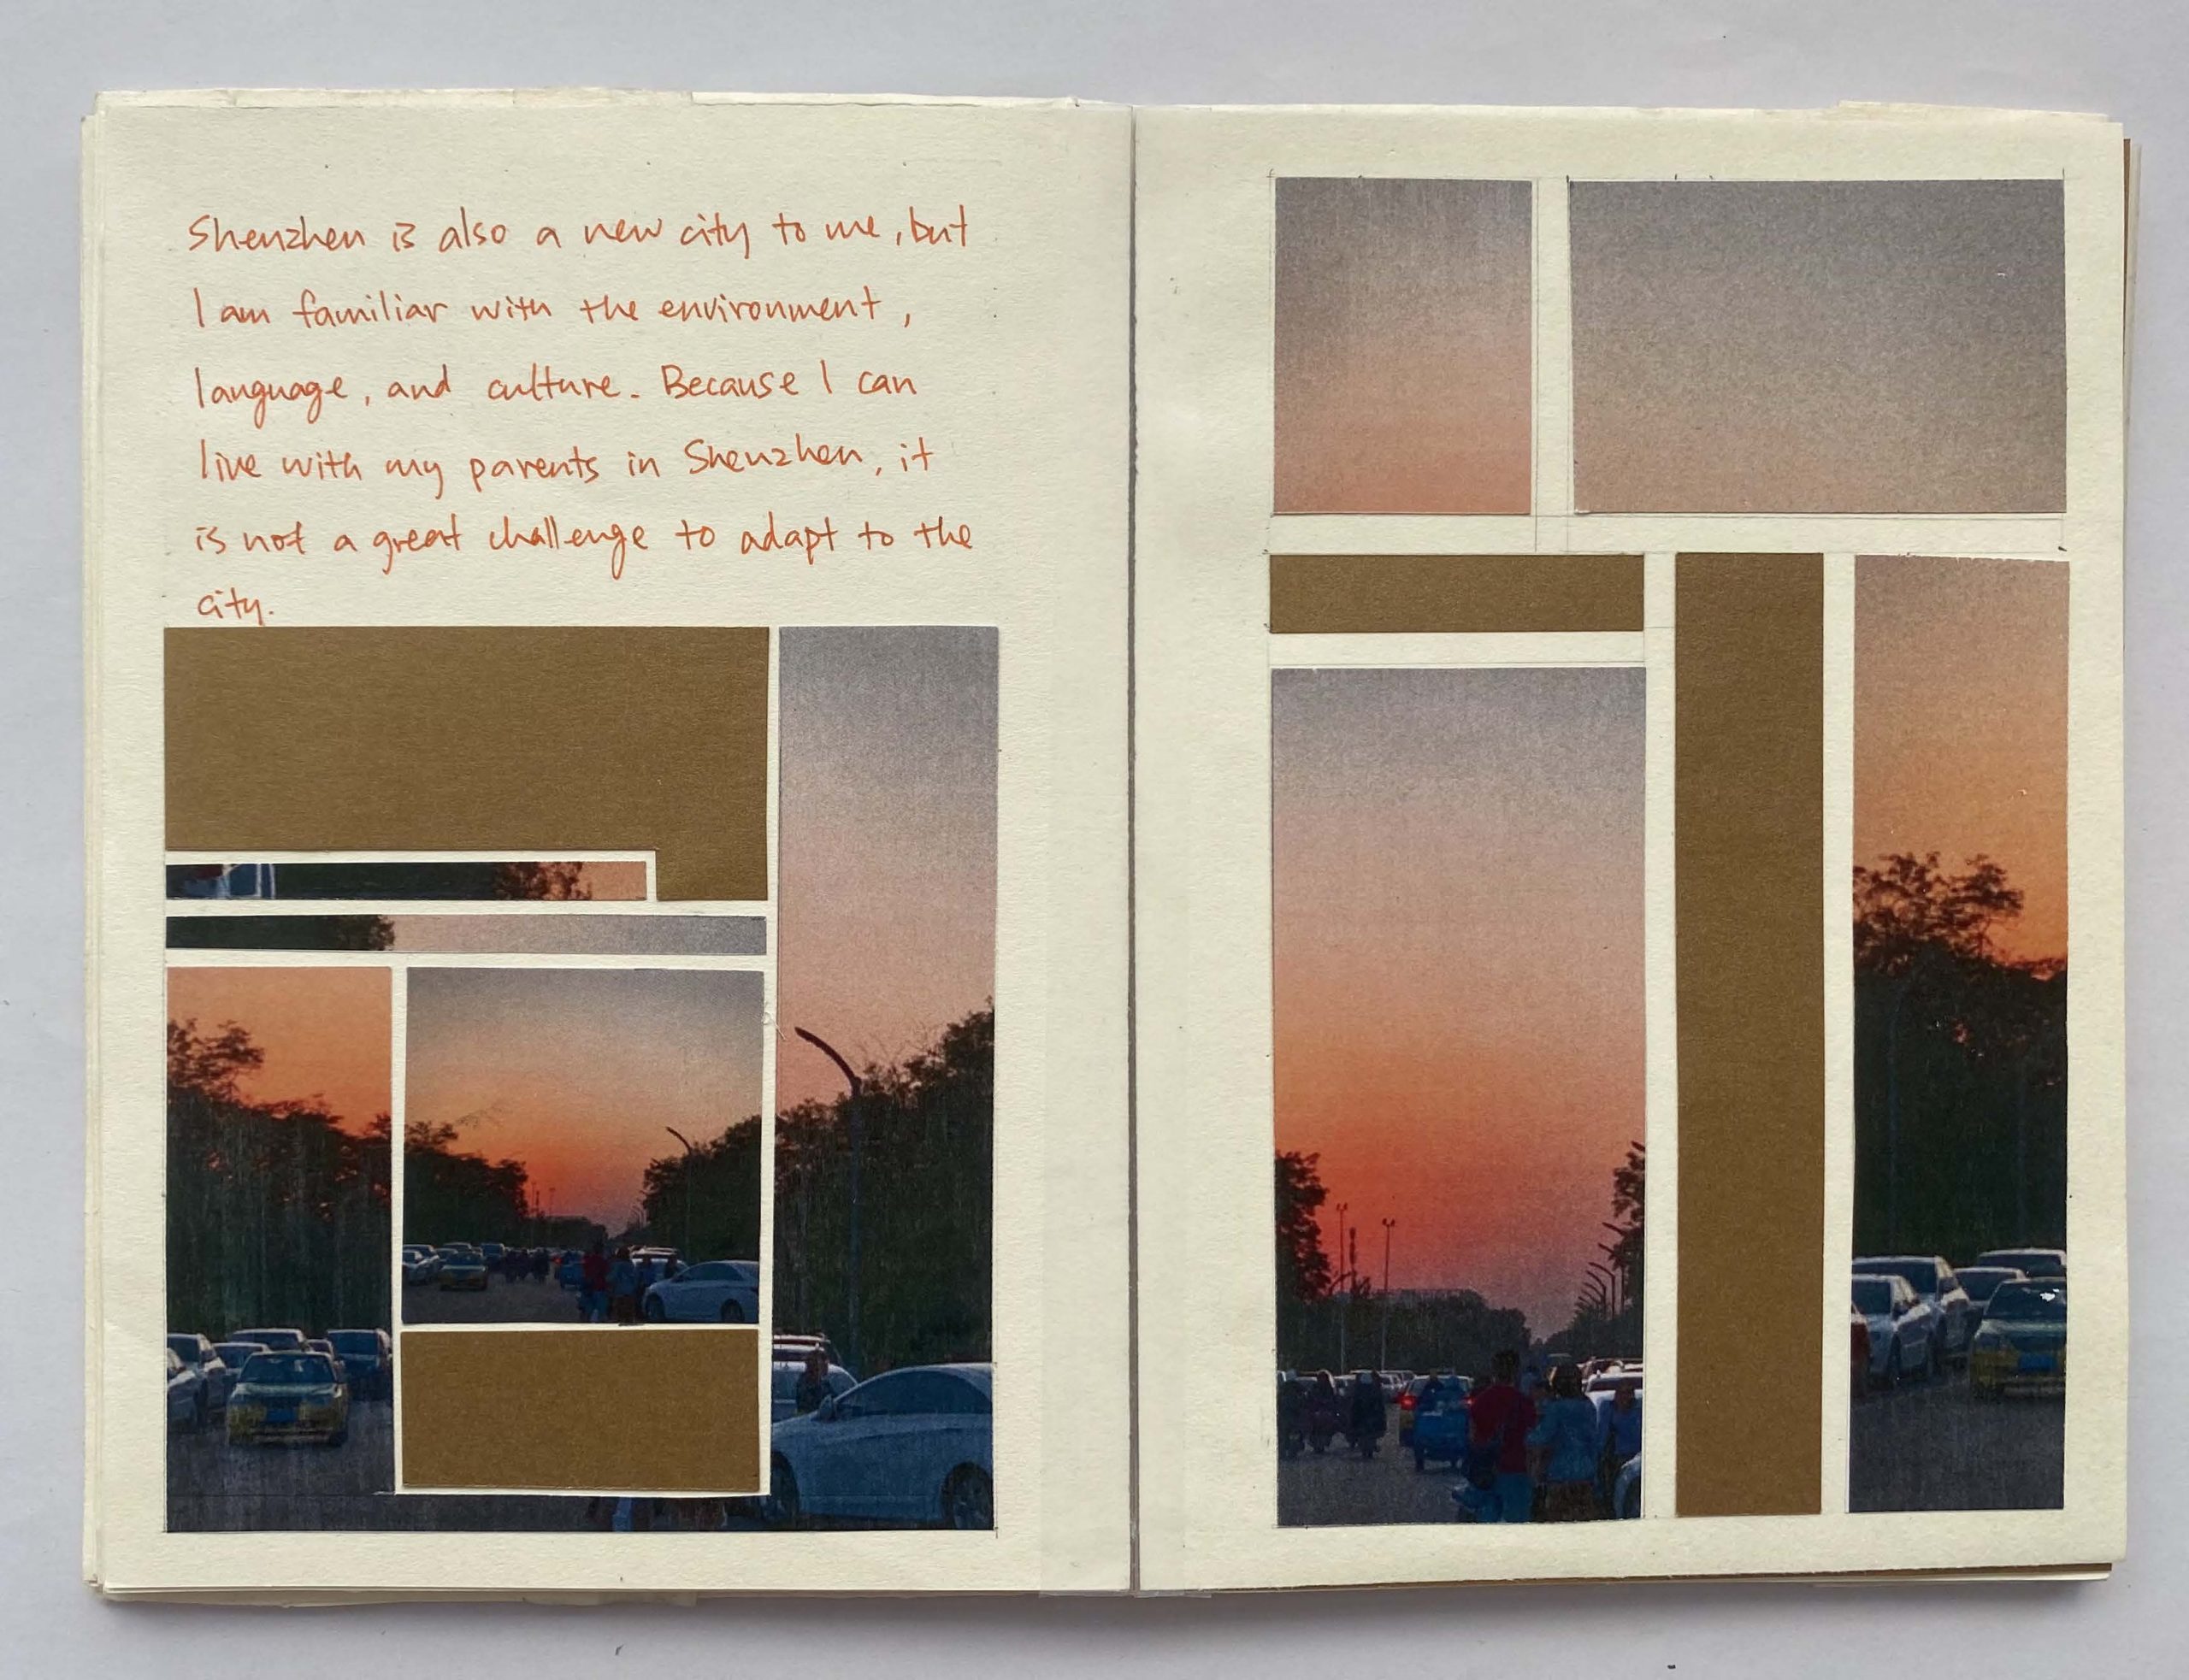 Shenzhen is also a new city to me, but
I am familiar with the environment,
language, and culture. Because I can
live with my parents in Shenzhen, it
is not a great challenge to adapt to the
city.